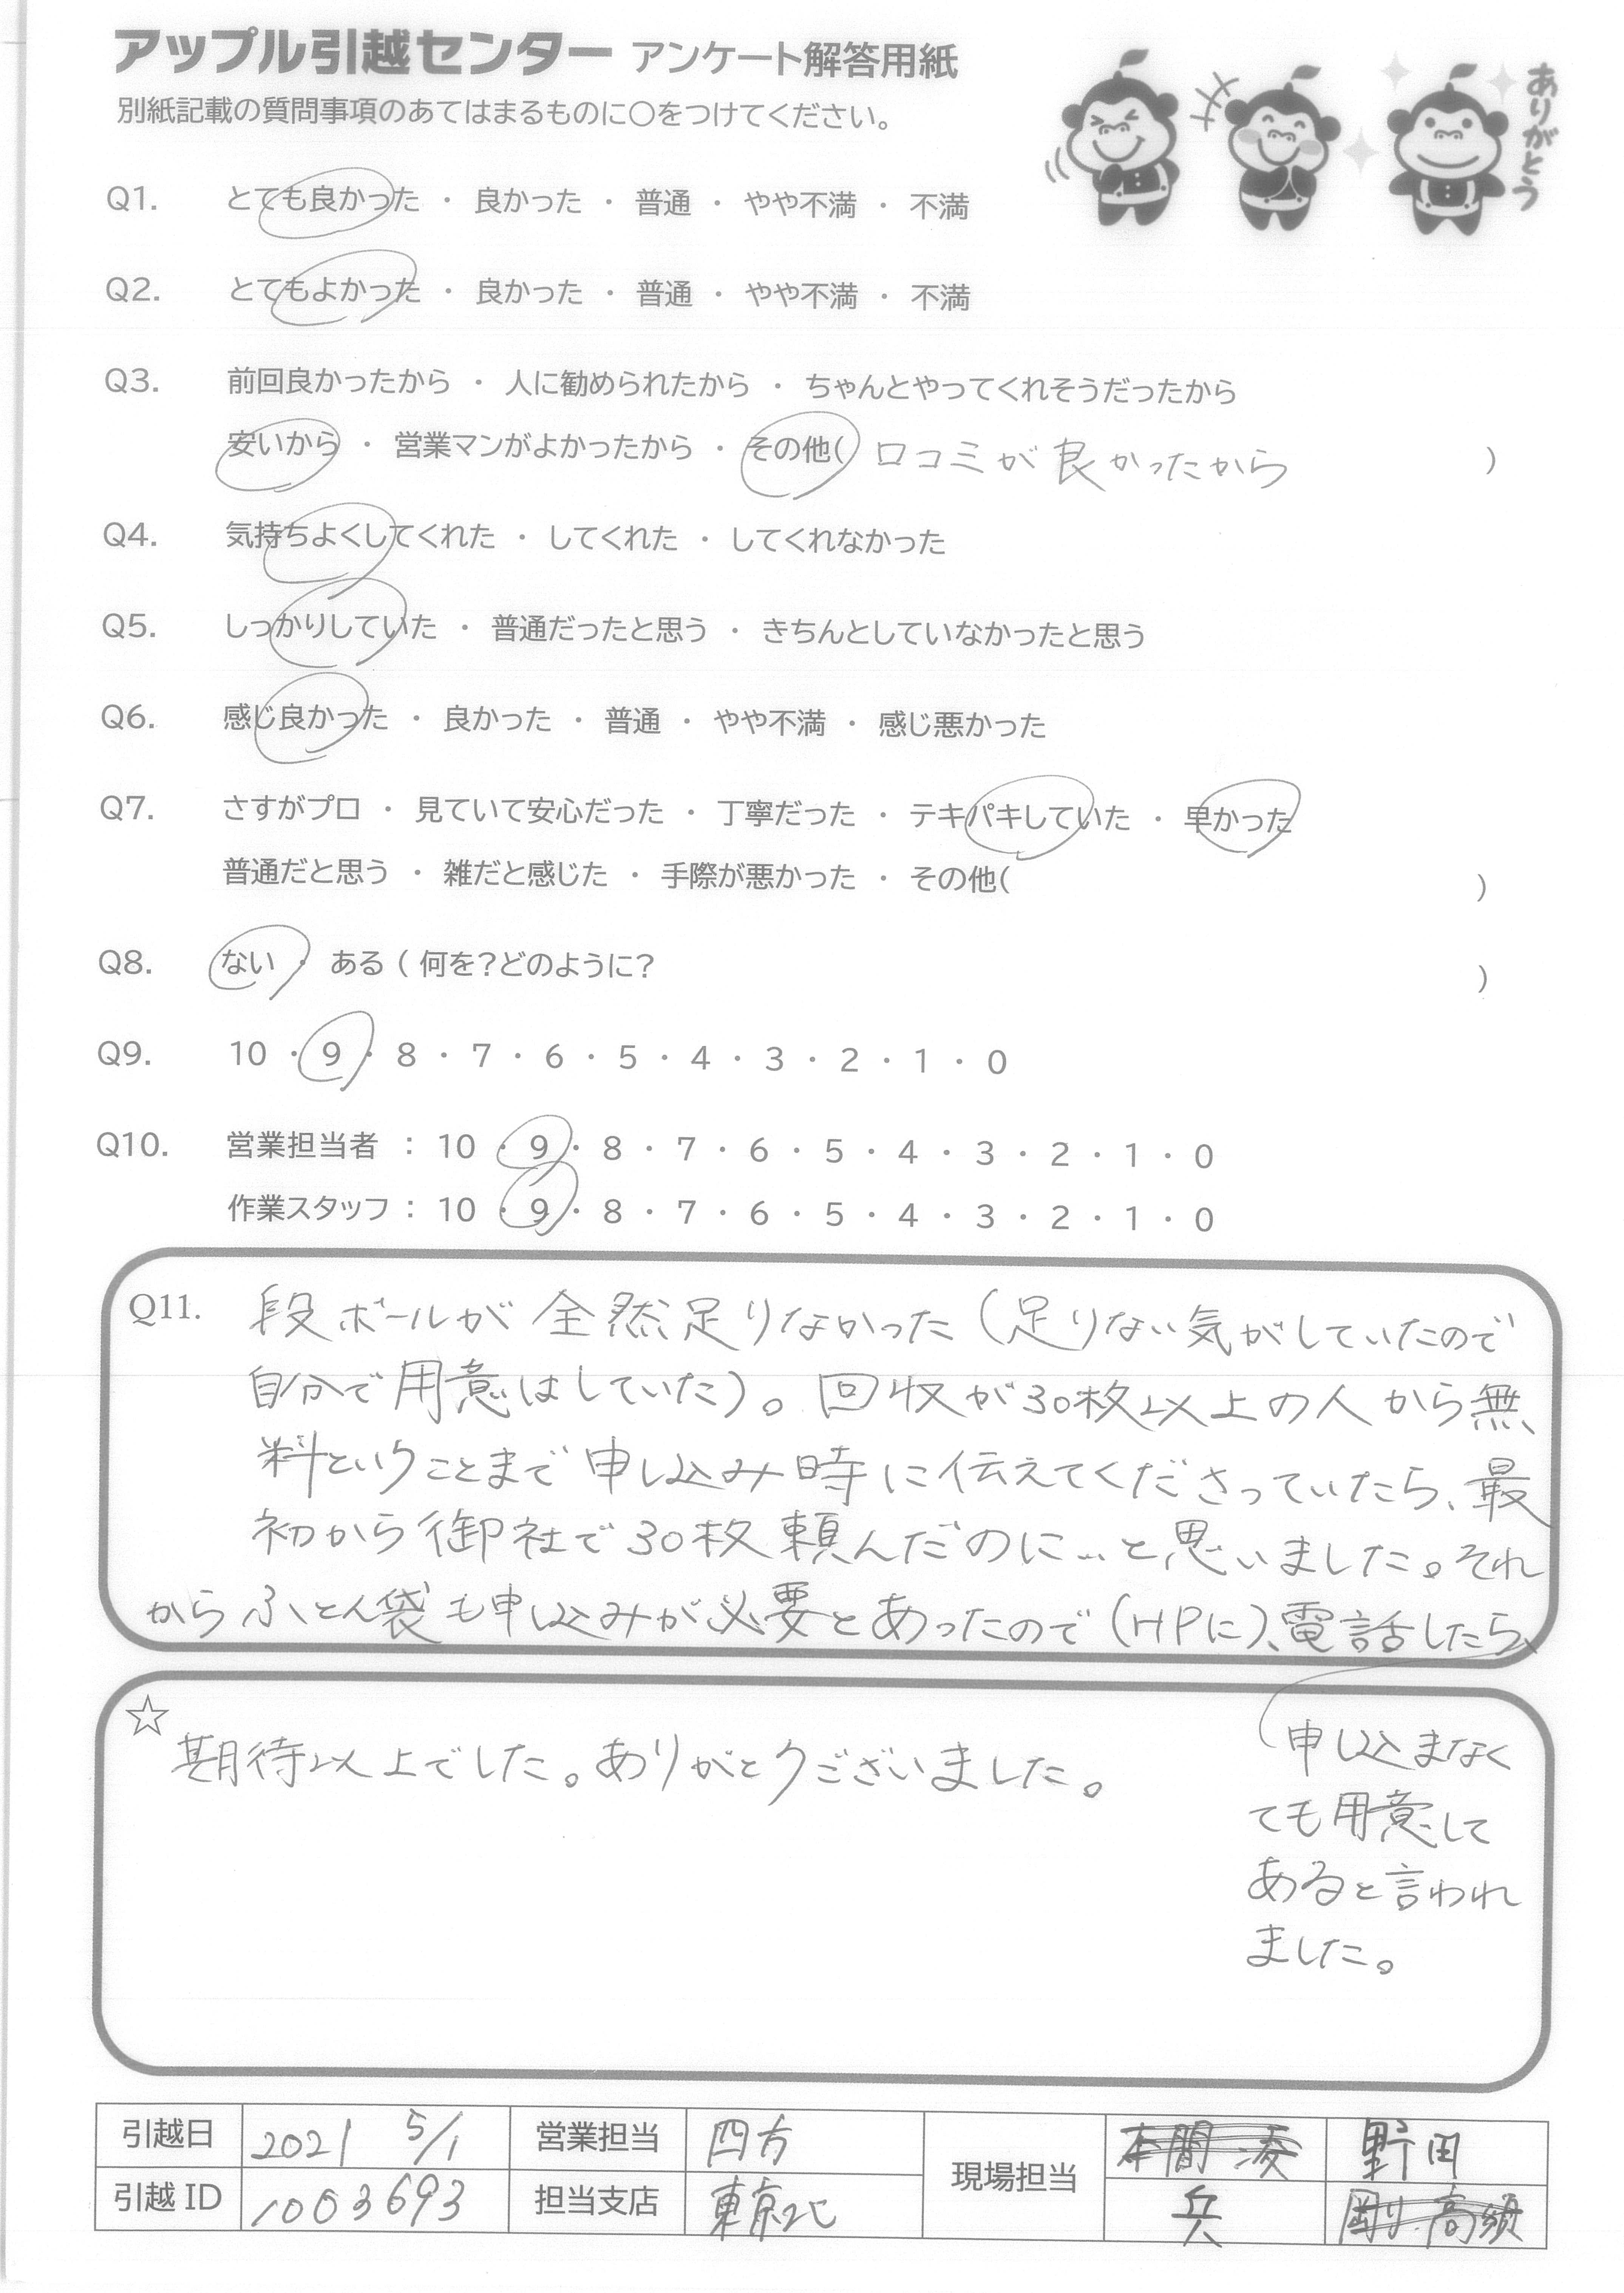 アップル引越センター アンケート解答用紙
別紙記載の質問事項のあてはまるものに○をつけてください。
ありがとう
Q1. とても良かった ・ 良かった ・ 普通 ・ やや不満 ・ 不満
Q2. とてもよかった ・ 良かった ・ 普通 ・ やや不満 ・ 不満
Q3. 前回良かったから ・ 人に勧められたから ・ ちゃんとやってくれそうだったから
安いから ・ 営業マンがよかったから ・ その他( 口コミが良かったから )
Q4. 気持ちよくしてくれた ・ してくれた ・ してくれなかった
Q5. しっかりしていた ・ 普通だったと思う ・ きちんとしていなかったと思う
Q6. 感じ良かった ・ 良かった ・ 普通 ・ やや不満 ・ 感じ悪かった
Q7. さすがプロ ・ 見ていて安心だった ・ 丁寧だった ・ テキパキしていた ・ 早かった
普通だと思う ・ 雑だと感じた ・ 手際が悪かった ・ その他( )
Q8. ない ・ ある ( 何を?どのように? )
Q9. 10 ・ 9 ・ 8 ・ 7 ・ 6 ・ 5 ・ 4 ・ 3 ・ 2 ・ 1 ・ 0
Q10. 営業担当者 : 10 ・ 9 ・ 8 ・ 7 ・ 6 ・ 5 ・ 4 ・ 3 ・ 2 ・ 1 ・ 0
作業スタッフ : 10 ・ 9 ・ 8 ・ 7 ・ 6 ・ 5 ・ 4 ・ 3 ・ 2 ・ 1 ・ 0
Q11. 段ボールが全然足りなかった(足りない気がしていたので
自分で用意はしていた)。回収が30枚以上の人から無
料ということまで申し込み時に伝えてくださっていたら、最
初から御社で30枚頼んだのに…と思いました。それ
からふとん袋も申し込みが必要とあったので(HPに)、電話したら、
申し込まなく
ても用意して
あると言われ
ました。
☆ 期待以上でした。ありがとうございました。
引越日 2021 5/1 営業担当 四方 現場担当 本間 凌 野田
引越ID 1003693 担当支店 東京北 兵 剛 高須